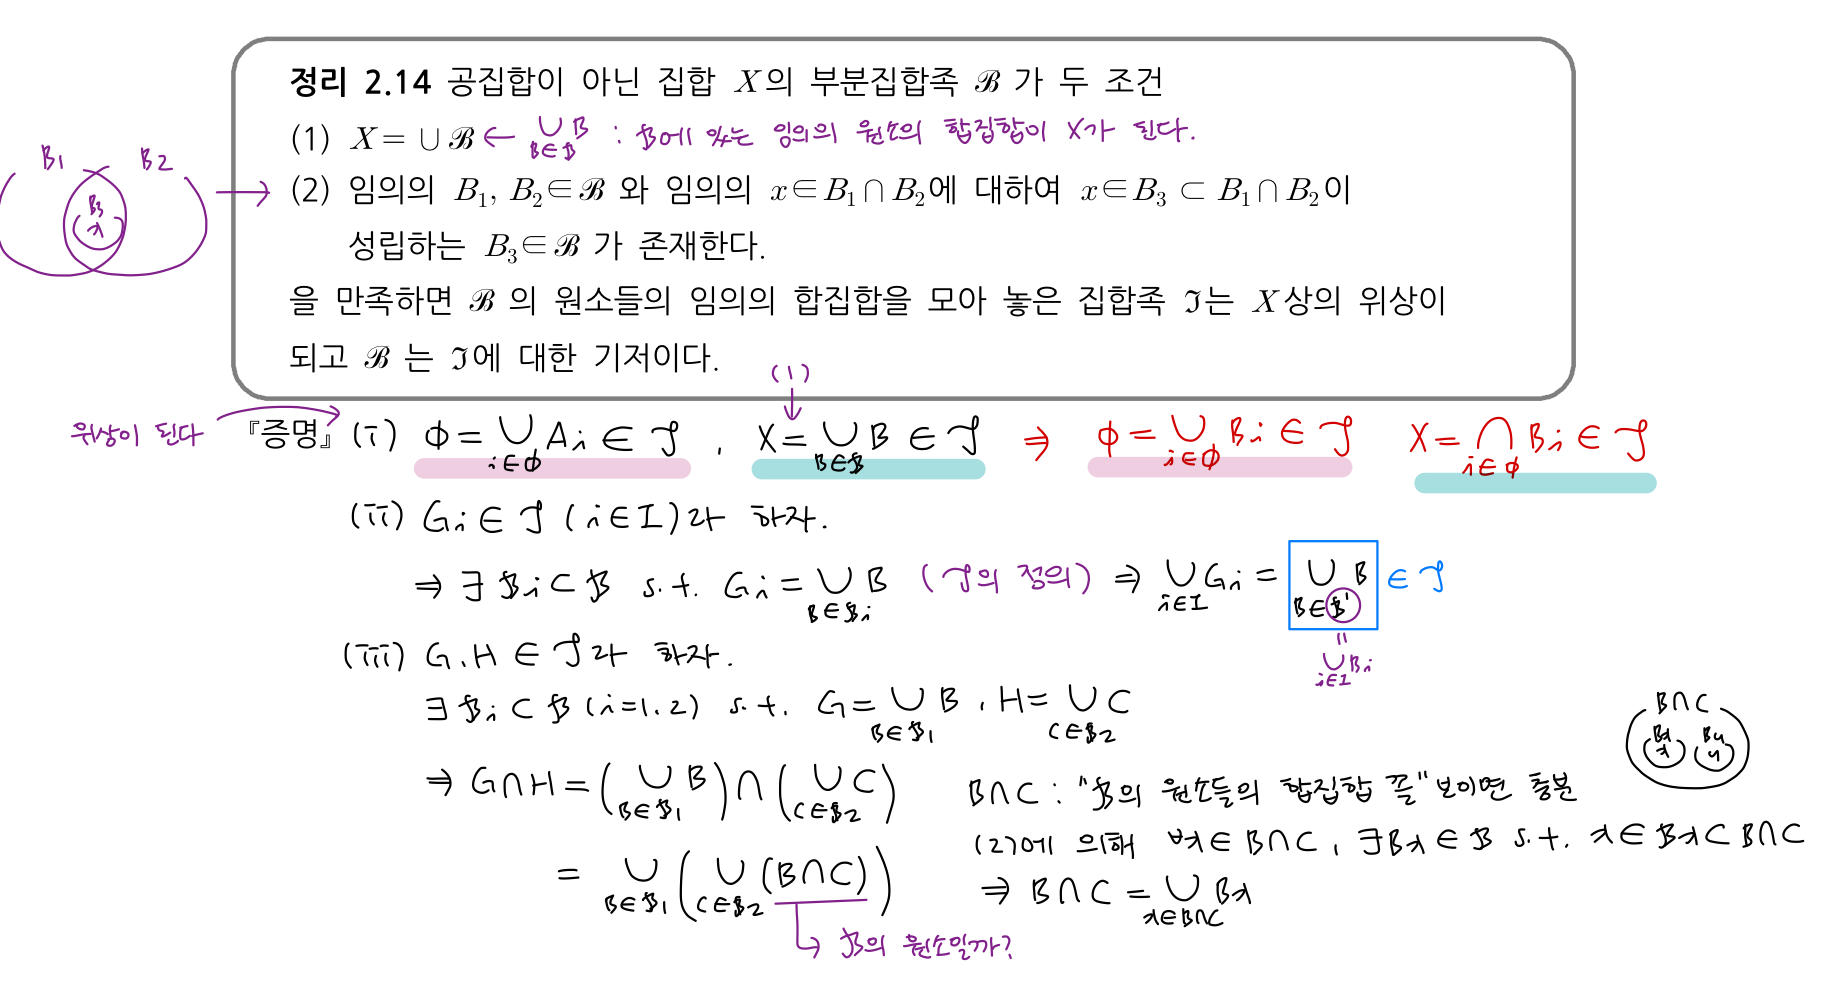 정리 2.14 공집합이 아닌 집합 X의 부분집합족 ℬ 가 두 조건
(1) X = ∪ ℬ ← ∪_{B∈ℬ} B : ℬ에 있는 임의의 원소의 합집합이 X가 된다.
B1 B2 B3 x → (2) 임의의 B₁, B₂∈ℬ 와 임의의 x∈B₁∩B₂에 대하여 x∈B₃ ⊂ B₁∩B₂이
성립하는 B₃∈ℬ 가 존재한다.
을 만족하면 ℬ 의 원소들의 임의의 합집합을 모아 놓은 집합족 ℑ는 X상의 위상이
되고 ℬ 는 ℑ에 대한 기저이다.
(1)
위상이 된다 『증명』 (i) φ = ∪_{i∈φ} Ai ∈ ℑ , X = ∪_{B∈ℬ} B ∈ ℑ ⇒ φ = ∪_{i∈φ} Bi ∈ ℑ X = ∩_{i∈φ} Bi ∈ ℑ
(ii) Gi ∈ ℑ (i∈I)라 하자.
⇒ ∃ ℬi ⊂ ℬ s.t. Gi = ∪_{B∈ℬi} B (ℑ의 정의) ⇒ ∪_{i∈I} Gi = ∪_{B∈ℬ'} B ∈ ℑ
=
∪_{i∈I} ℬi
(iii) G, H ∈ ℑ라 하자.
∃ ℬi ⊂ ℬ (i=1,2) s.t. G = ∪_{B∈ℬ1} B , H = ∪_{C∈ℬ2} C
B∩C Bx x By y
⇒ G∩H = (∪_{B∈ℬ1} B) ∩ (∪_{C∈ℬ2} C) B∩C : "ℬ의 원소들의 합집합 꼴" 보이면 충분
(2)에 의해 ∀x∈B∩C, ∃Bx∈ℬ s.t. x∈Bx⊂B∩C
= ∪_{B∈ℬ1} (∪_{C∈ℬ2} (B∩C)) ⇒ B∩C = ∪_{x∈B∩C} Bx
↳ ℬ의 원소일까?